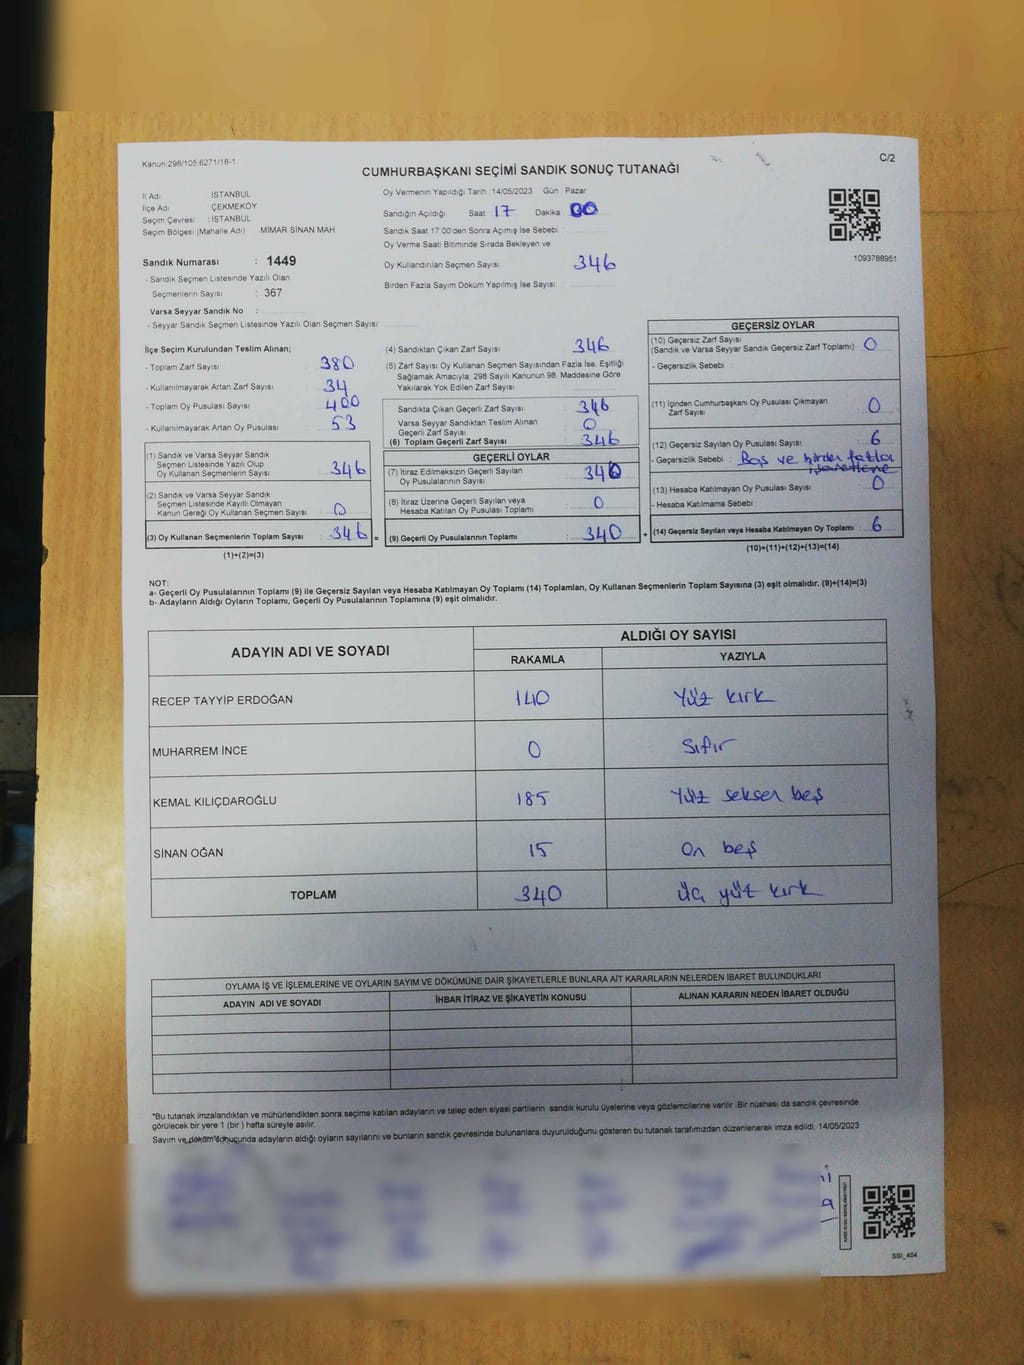 Kanun 298/105 6271/18-1
C/2
CUMHURBAŞKANI SEÇİMİ SANDIK SONUÇ TUTANAĞI
İl Adı İSTANBUL
İlçe Adı ÇEKMEKÖY
Seçim Çevresi : İSTANBUL
Seçim Bölgesi (Mahalle Adı) MİMAR SİNAN MAH.
Oy Vermenin Yapıldığı Tarih 14/05/2023 Gün Pazar
Sandığın Açıldığı Saat 17 Dakika 00
Sandık Saat 17:00'den Sonra Açımış İse Sebebi
Oy Verme Saati Bitiminde Sırada Bekleyen ve
Oy Kullandırılan Seçmen Sayısı 346
Birden Fazla Sayım Döküm Yapılmış İse Sayısı
1093788951
Sandık Numarası : 1449
- Sandık Seçmen Listesinde Yazılı Olan
Seçmenlerin Sayısı : 367
Varsa Seyyar Sandık No :
- Seyyar Sandık Seçmen Listesinde Yazılı Olan Seçmen Sayısı
İlçe Seçim Kurulundan Teslim Alınan;
- Toplam Zarf Sayısı : 380
- Kullanılmayarak Artan Zarf Sayısı : 34
- Toplam Oy Pusulası Sayısı : 400
- Kullanılmayarak Artan Oy Pusulası : 53
(1) Sandık ve Varsa Seyyar Sandık
Seçmen Listesinde Yazılı Olup
Oy Kullanan Seçmenlerin Sayısı : 346
(2) Sandık ve Varsa Seyyar Sandık
Seçmen Listesinde Kayıtlı Olmayan
Kanun Gereği Oy Kullanan Seçmen Sayısı : 0
(3) Oy Kullanan Seçmenlerin Toplam Sayısı : 346 =
(1)+(2)=(3)
(4) Sandıktan Çıkan Zarf Sayısı : 346
(5) Zarf Sayısı Oy Kullanan Seçmen Sayısından Fazla İse, Eşitliği
Sağlamak Amacıyla; 298 Sayılı Kanunun 98. Maddesine Göre
Yakılarak Yok Edilen Zarf Sayısı
Sandıkta Çıkan Geçerli Zarf Sayısı : 346
Varsa Seyyar Sandıktan Teslim Alınan
Geçerli Zarf Sayısı : 0
(6) Toplam Geçerli Zarf Sayısı : 346
GEÇERLİ OYLAR
(7) İtiraz Edilmeksizin Geçerli Sayılan
Oy Pusulalarının Sayısı : 340
(8) İtiraz Üzerine Geçerli Sayılan veya
Hesaba Katılan Oy Pusulası Toplamı : 0
(9) Geçerli Oy Pusulalarının Toplamı : 340 +
GEÇERSİZ OYLAR
(10) Geçersiz Zarf Sayısı
(Sandık ve Varsa Seyyar Sandık Geçersiz Zarf Toplamı) : 0
- Geçersizlik Sebebi
(11) İçinden Cumhurbaşkanı Oy Pusulası Çıkmayan
Zarf Sayısı : 0
(12) Geçersiz Sayılan Oy Pusulası Sayısı : 6
- Geçersizlik Sebebi : Boş ve birden fazla
işaretleme
(13) Hesaba Katılmayan Oy Pusulası Sayısı : 0
- Hesaba Katılmama Sebebi :
(14) Geçersiz Sayılan veya Hesaba Katılmayan Oy Toplamı : 6
(10)+(11)+(12)+(13)=(14)
NOT:
a- Geçerli Oy Pusulalarının Toplamı (9) ile Geçersiz Sayılan veya Hesaba Katılmayan Oy Toplamı (14) Toplamları, Oy Kullanan Seçmenlerin Toplam Sayısına (3) eşit olmalıdır. (9)+(14)=(3)
b- Adayların Aldığı Oyların Toplamı, Geçerli Oy Pusulalarının Toplamına (9) eşit olmalıdır.
ADAYIN ADI VE SOYADI ALDIĞI OY SAYISI
RAKAMLA YAZIYLA
RECEP TAYYİP ERDOĞAN 140 Yüz kırk
MUHARREM İNCE 0 Sıfır
KEMAL KILIÇDAROĞLU 185 Yüz seksen beş
SİNAN OĞAN 15 On beş
TOPLAM 340 Üç yüz kırk
OYLAMA İŞ VE İŞLEMLERİNE VE OYLARIN SAYIM VE DÖKÜMÜNE DAİR ŞİKAYETLERLE BUNLARA AİT KARARLARIN NELERDEN İBARET BULUNDUKLARI
ADAYIN ADI VE SOYADI İHBAR İTİRAZ VE ŞİKAYETİN KONUSU ALINAN KARARIN NEDEN İBARET OLDUĞU
*Bu tutanak imzalandıktan ve mühürlendikten sonra seçime katılan adayların ve talep eden siyasi partilerin sandık kurulu üyelerine veya gözlemcilerine verilir. Bir nüshası da sandık çevresinde
görülecek bir yere 1 (bir) hafta süreyle asılır.
Sayım ve döküm sonucunda adayların aldığı oyların sayılarını ve bunların sandık çevresinde bulunanlara duyurulduğunu gösteren bu tutanak tarafımızdan düzenlenerek imza edildi. 14/05/2023
SSI_404